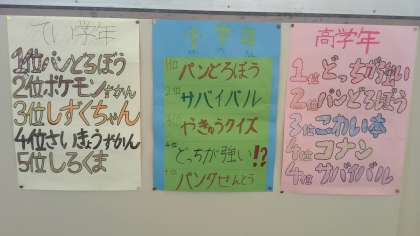 てい学年
1位パンどろぼう
2位ポケモンずかん
3位しずくちゃん
4位さいきょうずかん
5位しろくま
中学年
1位パンどろぼう
2位サバイバル
3位やきゅうクイズ
4位どっちが強い!?
5位パンダせんとう
高学年
1位どっちが強い
2位パンどろぼう
3位こわい本
4位コナン
4位サバイバル